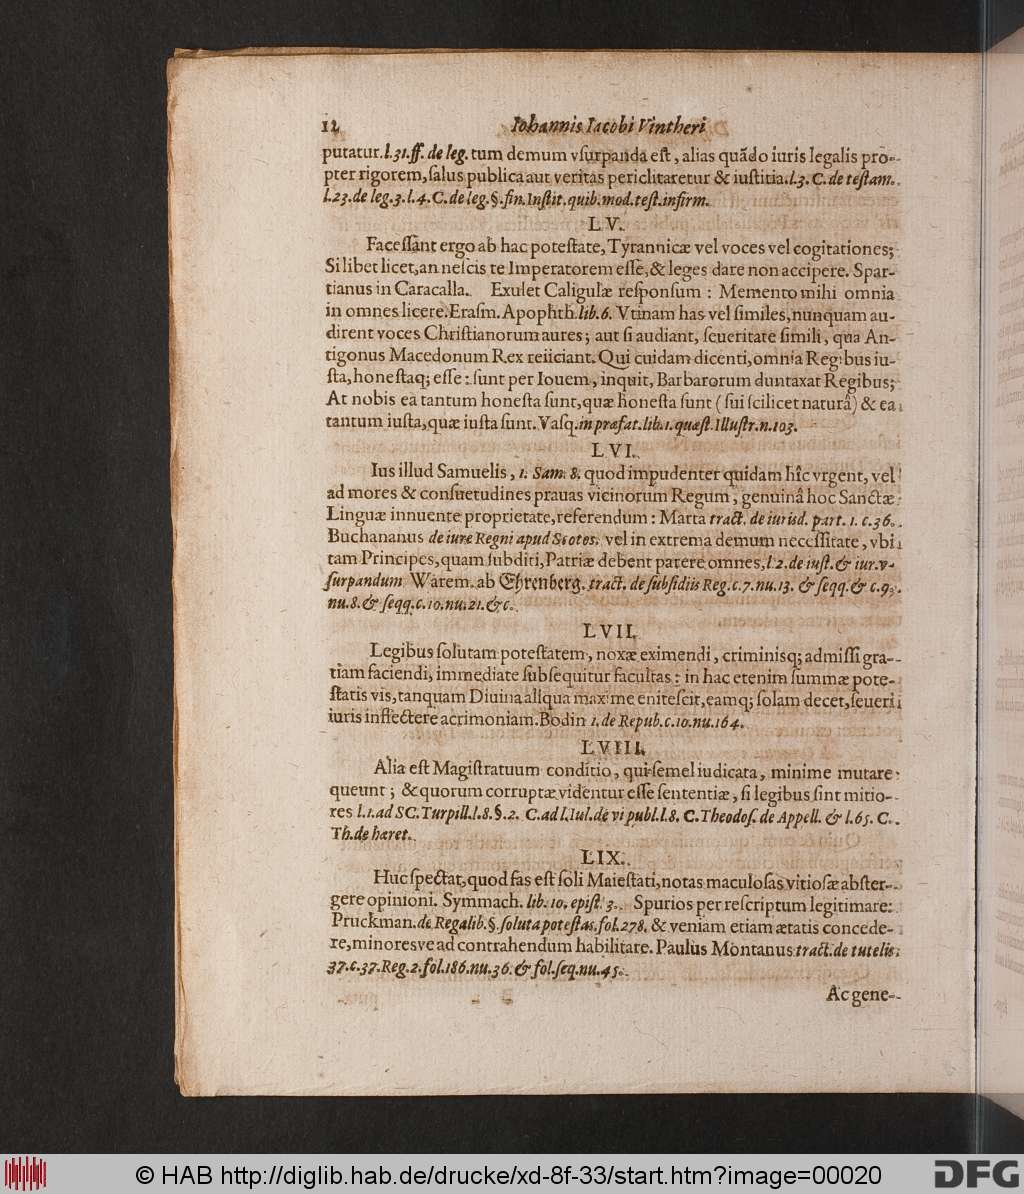 12 Iohannis Iacobi Vintheri
putatur.l.31.ff. de leg. tum demum vſurpanda eſt, alias quãdo iuris legalis pro-
pter rigorem, ſalus publica aut veritas periclitaretur & iuſtitia.l.3. C. de teſtam.
l.23.de leg.3.l.4.C.de leg.§.fin.Inſtit.quib.mod.teſt.infirm.
LV.
Faceſſant ergo ab hac poteſtate, Tyrannicæ vel voces vel cogitationes;
Si libet licet, an neſcis te Imperatorem eſſe, & leges dare non accipere. Spar-
tianus in Caracalla. Exulet Caligulæ reſponſum : Memento mihi omnia
in omnes licere. Eraſm. Apophth.lib.6. Vtinam has vel ſimiles, nunquam au-
dirent voces Chriſtianorum aures; aut ſi audiant, ſeueritate ſimili, qua An-
tigonus Macedonum Rex reiiciant. Qui cuidam dicenti, omnia Regibus iu-
ſta, honeſtaq; eſſe: ſunt per Iouem, inquit, Barbarorum duntaxat Regibus;
At nobis ea tantum honeſta ſunt, quæ honeſta ſunt ( ſui ſcilicet naturâ) & ea
tantum iuſta, quæ iuſta ſunt. Vaſq.in præfat.lib.1.quæſt.Illuſtr.n.103.
LVI.
Ius illud Samuelis, 1. Sam. 8. quod impudenter quidam hîc vrgent, vel
ad mores & conſuetudines prauas vicinorum Regum, genuinâ hoc Sanctæ
Linguæ innuente proprietate, referendum : Marta tract. de iurisd. part. 1. c.36.
Buchananus de iure Regni apud Scotos. vel in extrema demum neceſſitate, vbi
tam Principes, quam ſubditi, Patriæ debent parere omnes, l.2.de iuſt.& iur.v-
ſurpandum Warem. ab Ehrenberg. tract. de ſubſidiis Reg.c.7.nu.13. & ſeqq.& c.9.
nu.8.& ſeqq.c.10.nu.21.&c.
LVII.
Legibus ſolutam poteſtatem, noxæ eximendi, criminisq; admiſſi gra-
tiam faciendi, immediate ſubſequitur facultas : in hac etenim ſummæ pote-
ſtatis vis, tanquam Diuina aliqua maxime eniteſcit, eamq; ſolam decet, ſeueri
iuris inflectere acrimoniam. Bodin 1. de Repub.c.10.nu.164.
LVIII.
Alia eſt Magiſtratuum conditio, qui ſemel iudicata, minime mutare
queunt ; & quorum corruptæ videntur eſſe ſententiæ, ſi legibus ſint mitio-
res l.1.ad SC.Turpill.l.8.§.2. C.ad l.Iul.de vi publ.l.8. C.Theodoſ.de Appell. & l.65. C.
Th.de hæret.
LIX.
Huc ſpectat, quod fas eſt ſoli Maieſtati, notas maculoſas vitioſæ abſter-
gere opinioni. Symmach. lib. 10. epiſt. 3. Spurios per reſcriptum legitimare:
Pruckman.de Regalib.§.ſoluta poteſtas.fol.278. & veniam etiam ætatis concede-
re, minoresve ad contrahendum habilitare. Paulus Montanus tract.de tutelis
37.c.37.Reg.2.fol.186.nu.36.& fol.ſeq.nu.45.
Ac gene-
© HAB http://diglib.hab.de/drucke/xd-8f-33/start.htm?image=00020
DFG